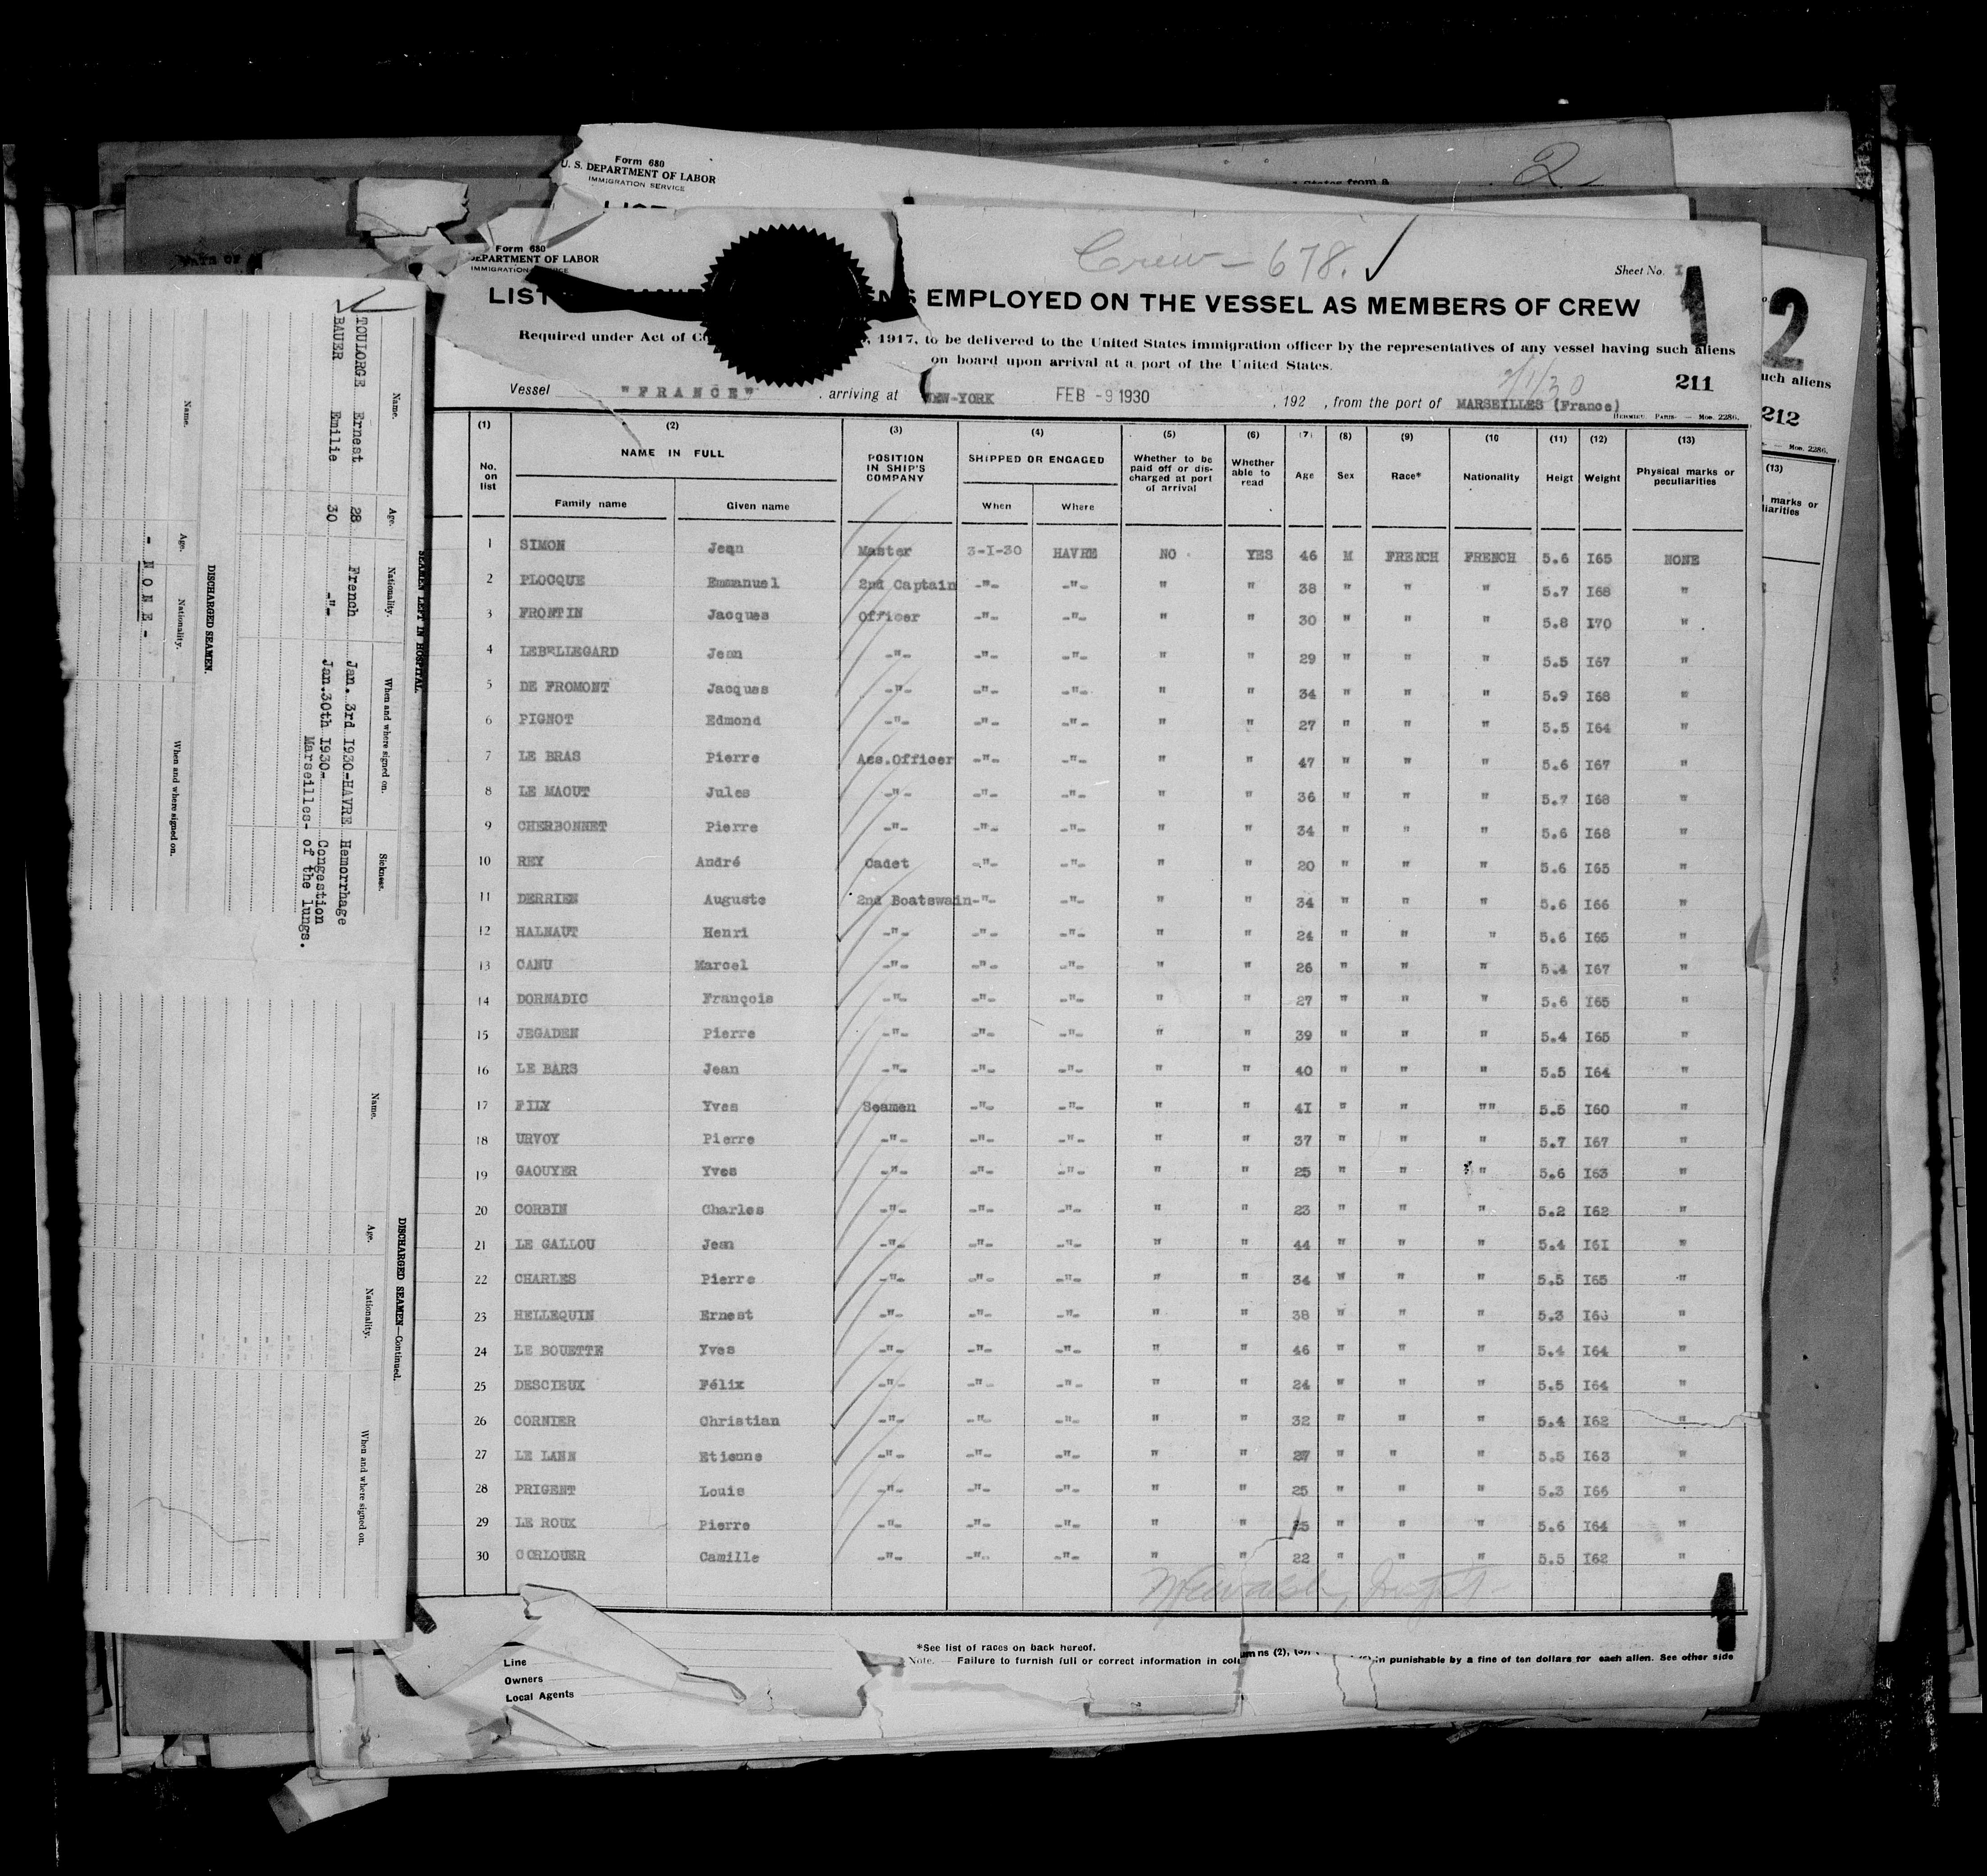 2
States from a
Form 680
U. S. DEPARTMENT OF LABOR
IMMIGRATION SERVICE
Form 680
DEPARTMENT OF LABOR
IMMIGRATION
Crew - 678. ✓
Sheet No. I
1
2
LIST EMPLOYED ON THE VESSEL AS MEMBERS OF CREW
Required under Act of 1917, to be delivered to the United States immigration officer by the representatives of any vessel having such aliens
on board upon arrival at a port of the United States.
2/1/30
211
such aliens
212
Vessel "FRANCE" , arriving at NEW-YORK FEB -9 1930 , 192 , from the port of MARSEILLES (France)
Mod. 2286.
(1) (2) (3) (4) (5) (6) (7) (8) (9) (10 (11) (12) (13)
No. on list NAME IN FULL POSITION IN SHIP'S COMPANY SHIPPED OR ENGAGED Whether to be paid off or discharged at port of arrival Whether able to read Age Sex Race* Nationality Heigt Weight Physical marks or peculiarities
Family name Given name When Where
1 SIMON Jean Master 3-I-30 HAVRE NO YES 46 M FRENCH FRENCH 5.6 I65 NONE
2 PLOCQUE Emmanuel 2nd Captain -"- -"- " " 38 " " " 5.7 I68 "
3 FRONTIN Jacques Officer -"- -"- " " 30 " " " 5.8 I70 "
4 LEBELLEGARD Jean -"- -"- -"- " " 29 " " " 5.5 I67 "
5 DE FROMONT Jacques -"- -"- -"- " " 34 " " " 5.9 I68 "
6 PIGNOT Edmond -"- -"- -"- " " 27 " " " 5.5 I64 "
7 LE BRAS Pierre Ass.Officer -"- -"- " " 47 " " " 5.6 I67 "
8 LE MAOUT Jules -"- -"- -"- " " 36 " " " 5.7 I68 "
9 CHERBONNET Pierre -"- -"- -"- " " 34 " " " 5.6 I68 "
10 REY André Cadet -"- -"- " " 20 " " " 5.6 I65 "
11 DERRIEN Auguste 2nd Boatswain -"- -"- " " 34 " " " 5.6 I66 "
12 HALNAUT Henri -"- -"- -"- " " 24 " " " 5.6 I65 "
13 CANU Marcel -"- -"- -"- " " 26 " " " 5.4 I67 "
14 DORNADIC François -"- -"- -"- " " 27 " " " 5.6 I65 "
15 JEGADEN Pierre -"- -"- -"- " " 39 " " " 5.4 I65 "
16 LE BARS Jean -"- -"- -"- " " 40 " " " 5.5 I64 "
17 FILY Yves Seamen -"- -"- " " 4I " " "" 5.5 I60 "
18 URVOY Pierre -"- -"- -"- " " 37 " " " 5.7 I67 "
19 GAOUYER Yves -"- -"- -"- " " 25 " " " 5.6 I63 "
20 CORBIN Charles -"- -"- -"- " " 23 " " " 5.2 I62 "
21 LE GALLOU Jean -"- -"- -"- " " 44 " " " 5.4 I6I "
22 CHARLES Pierre -"- -"- -"- " " 34 " " " 5.5 I65 "
23 HELLEQUIN Ernest -"- -"- -"- " " 38 " " " 5.3 "
24 LE BOUETTE Yves -"- -"- -"- " " 46 " " " 5.4 I64 "
25 DESCIEUX Félix -"- -"- -"- " " 24 " " " 5.5 I64 "
26 CORNIER Christian -"- -"- -"- " " 32 " " " 5.4 I62 "
27 LE LANN Etienne -"- -"- -"- " " 27 " " " 5.5 I63 "
28 PRIGENT Louis -"- -"- -"- " " 25 " " " 5.3 I66 "
29 LE ROUX Pierre -"- -"- -"- " " 25 " " " 5.6 I64 "
30 CORLOUER Camille -"- -"- -"- " " 22 " " " 5.5 I62 "
1
*See list of races on back hereof.
Note. — Failure to furnish full or correct information in columns (2), punishable by a fine of ten dollars for each alien. See other side
Line
Owners
Local Agents
(13)
marks or
SEAMEN LEFT IN HOSPITAL
Name. Age. Nationality. When and where signed on. Sickness.
TOULORGE Ernest 28 French Jan. 3rd I930-HAVRE Hemorrhage
BAUER Emilie 30 -"- Jan.30th I930- Congestion
Marseilles- of the lungs.
DISCHARGED SEAMEN.
Name. Age. Nationality. When and where signed on.
- N O N E -
DISCHARGED SEAMEN—Continued.
Name. Age. Nationality. When and where signed on.